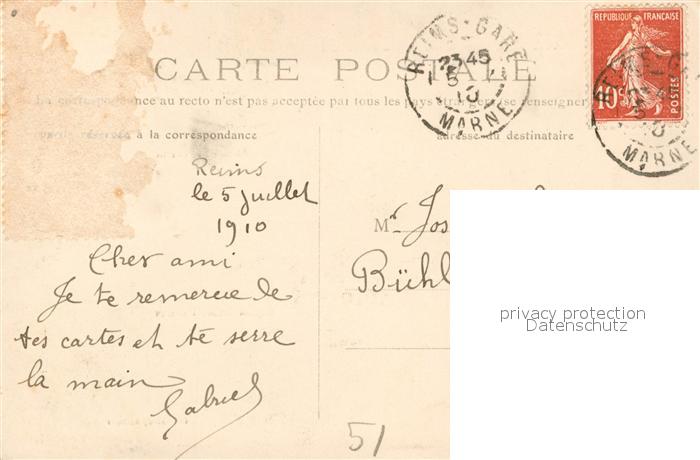 CARTE POSTALE
REIMS-GARE
23 45
5
10
MARNE
REPUBLIQUE FRANÇAISE
10c
POSTES
REIMS-G
MARNE
La correspondance au recto n'est pas acceptée par tous les pays étrangers. (se renseigner
Partie réservée à la correspondance
adresse du destinataire
Reims
le 5 juillet
1910
Cher ami
Je te remercie de
tes cartes et te serre
la main
Gabriel
Mr. Jos
Bühl
51
privacy protection
Datenschutz